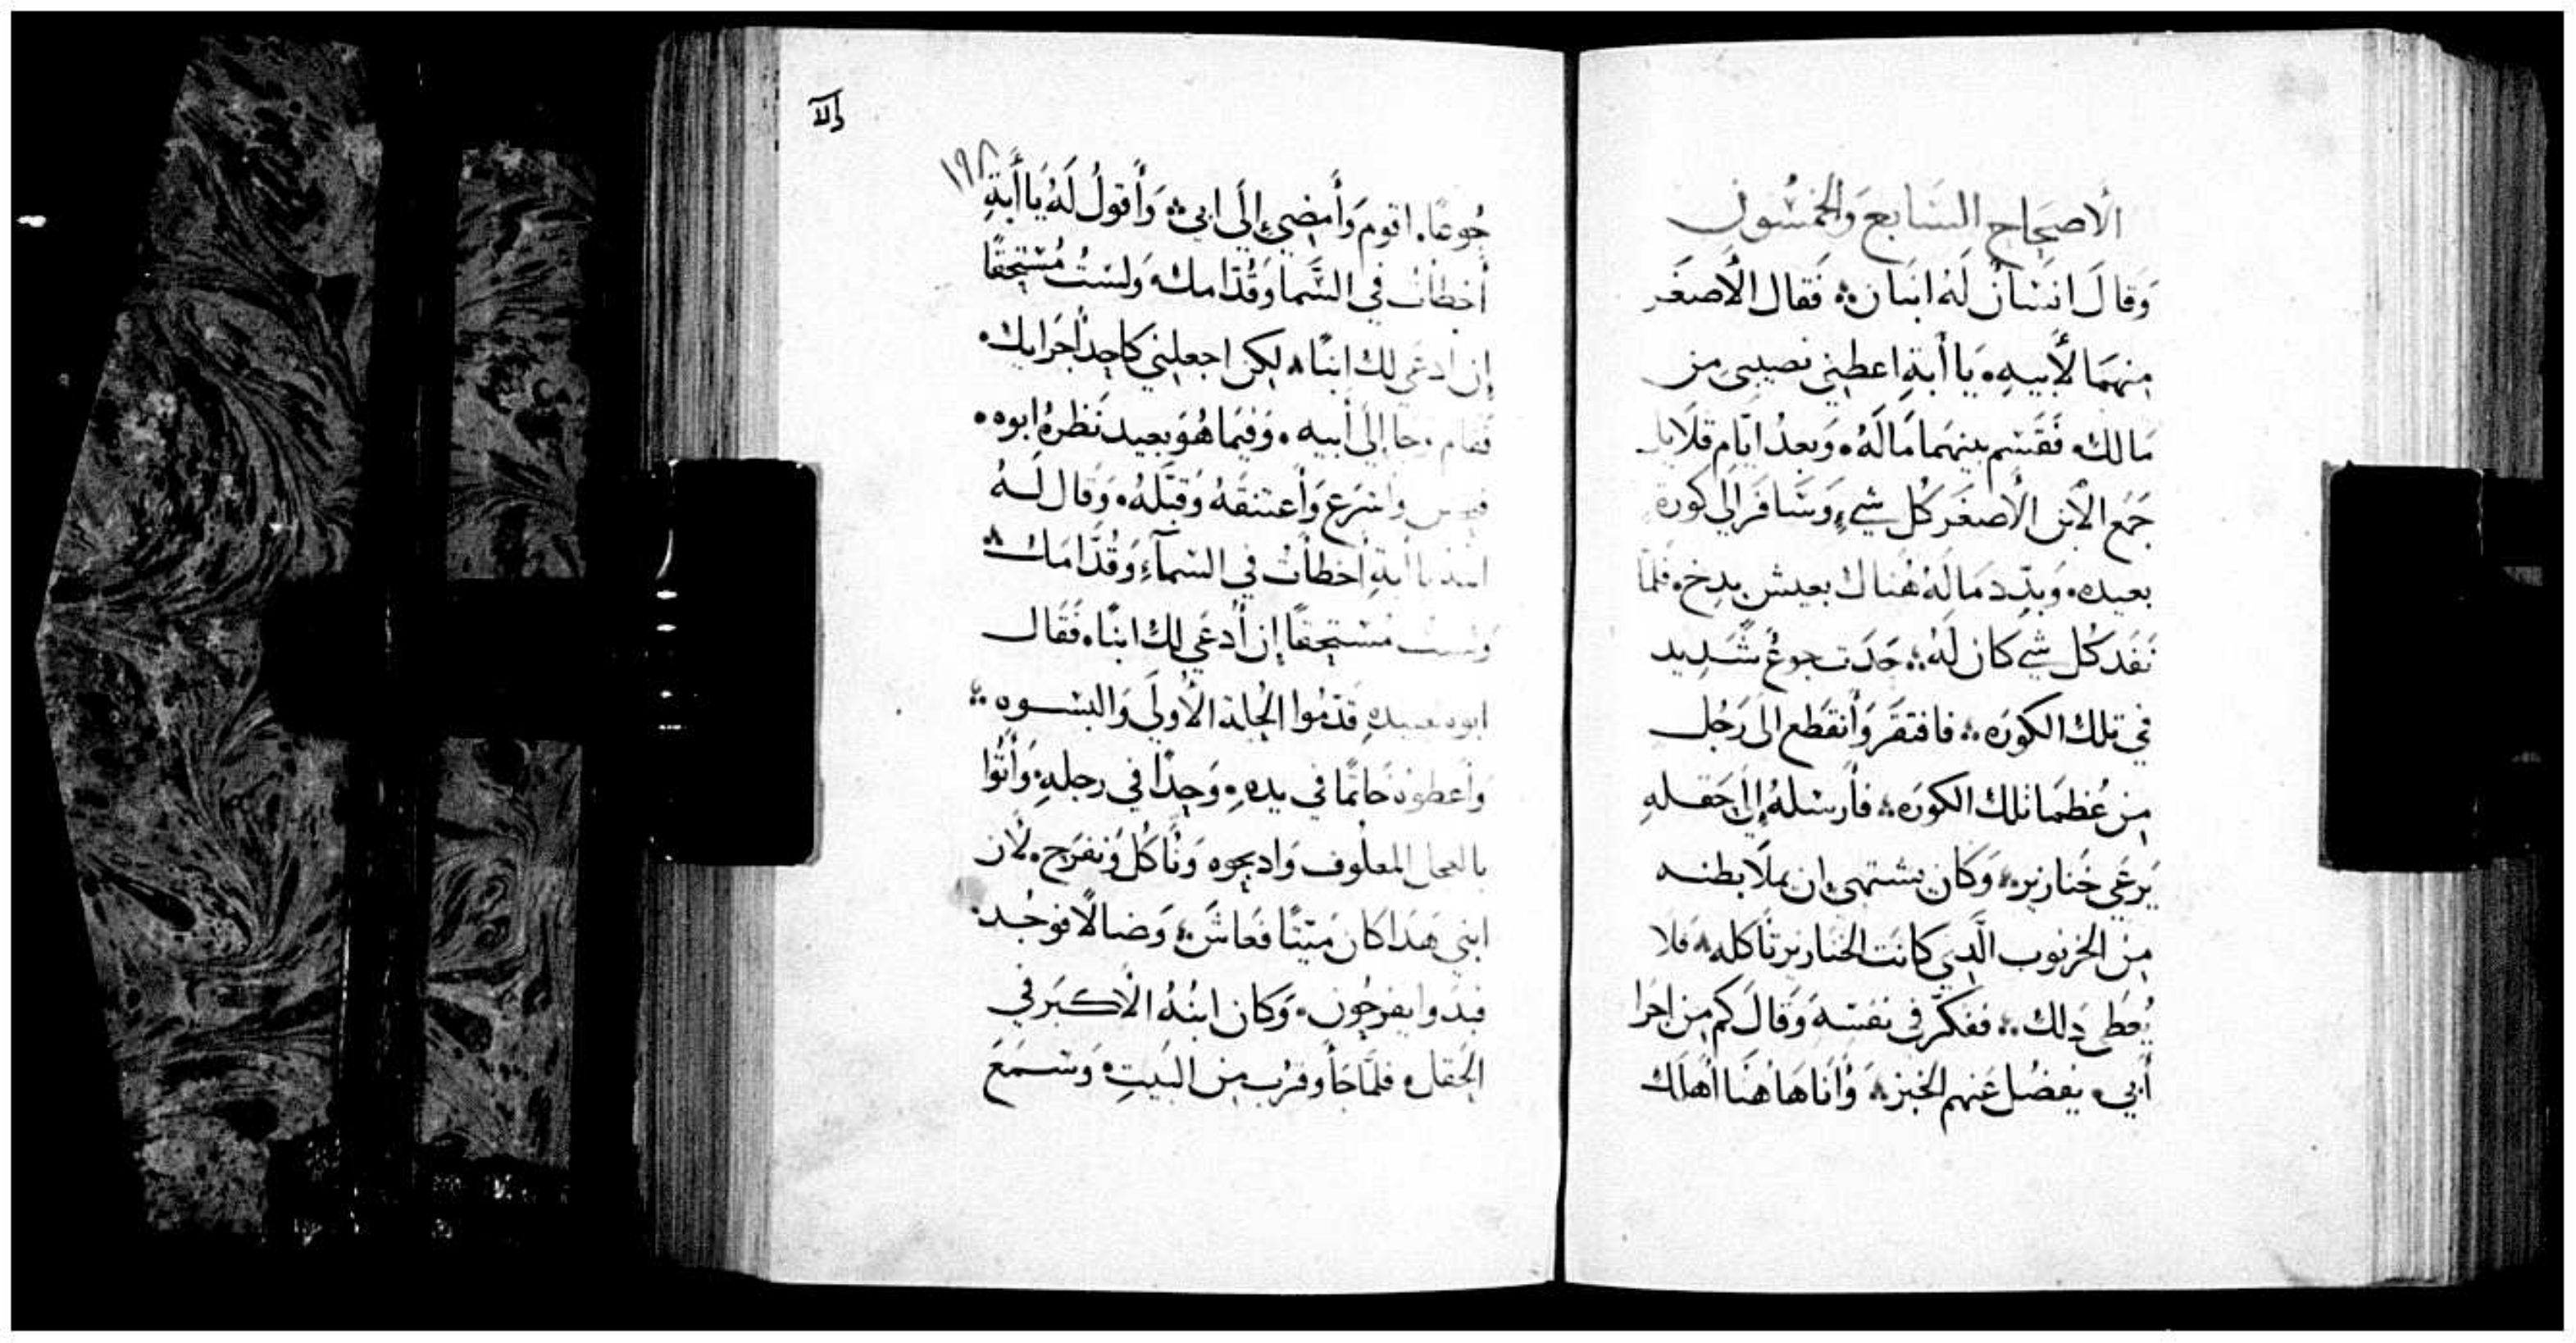 الأصحاح السابع والخمسون
وَقالَ انسَانٌ لَهُ ابنان ܀ فَقال الأصغَر
مِنهمَا لأبيهِ • يَا أبَةِ اعطِني نصيبي مِن
مَالك • فَقَسَم بينهمَا مَالَهُ • وَبعدُ ايّام قلايل
جَمَع الأبن الأصغَر كُل شيءٍ وَسَافَر الي كورة
بعيده • وَبدّد مَالَهُ هُناك بعيش بدِخ • فلمّا
نَفَد كُل شي كان لَهُ ܀ حَدَت جوعٌ شَديد
في تلك الكورَه ܀ فافتقَر وَأنقطَع الَى رَجُل
مِن عُظمَا تلك الكورَه ܀ فأرسَلهُ إلَى حَقلهِ
يَرعَى خَنازير ܀ وَكان يَشتهي ان يملا بطنه
مِن الخرنوب الَّدِي كانَت الخنازير تأكله ܀ فلا
يُعطى دَلك ܀ ففكّر في نفسَه وَقالَ كم مِن اجَرا
أبي • يَفضُل عَنهم الخبز ܀ وَأنَا هَا هُنَا أهلك
١٩٨
جُوعًا • اقوم وَأمضِي إلَى ابي ܀ وَأقولُ لَهُ يَا أبَةِ
أخطأت في السَّمَا وَقُدّامك • وَلستُ مُستحِقًا
إن ادعَى لك ابنًا ܀ لكِن اجعلِني كاحِد أجَرايك •
فَقام وجا إلَى أبيه • وَفيمَا هُوَ بعيد نَظَرهُ ابوه •
وَأسرَع وَأعتنقَهُ وَقبّلهُ • وَقال لَهُ
يا أبةِ اخطأت في السَمآءِ وَقُدَّامَك ܀
وَلست مُستحِقًا إن أُدعَي لك ابنًا • فَقَال
ابوه لعبيدهِ قدّمُوا الحُلة الأولَى وَالبسوه ܀
وَأعطوهُ خَاتمًا في يدهِ • وَحِدًا في رجلهِ • وَأتُوا
بالعجل المعلُوف وَادبحوه وَنَأكُل وَنفرَح • لأن
ابني هَدَا كان مَيتًا فَعَاشَ ܀ وَضالًا فوجُد •
فبدَوا يفرحُون • وَكان ابنُهُ الأكبَر في
الحَقل • فلمّا جَأ وقرُب مِن البَيتِ • وَسَمَعَ